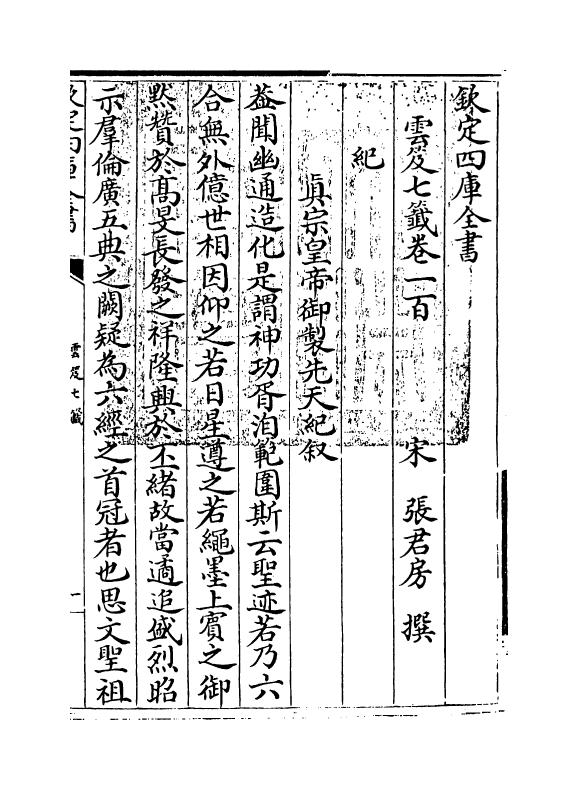 欽定四庫全書
雲笈七籤卷一百　宋　張君房　撰
紀
真宗皇帝御製先天紀叙
葢聞幽通造化是謂神功胥洎範圍斯云聖迹若乃六
合無外億世相因仰之若日星遵之若繩墨上賓之御
黙贊於髙旻長發之祥隆興於丕緒故當遹追盛烈昭
示羣倫廣五典之闕疑為六經之首冠者也思文聖祖
欽定四庫全書
雲笈七籤
一